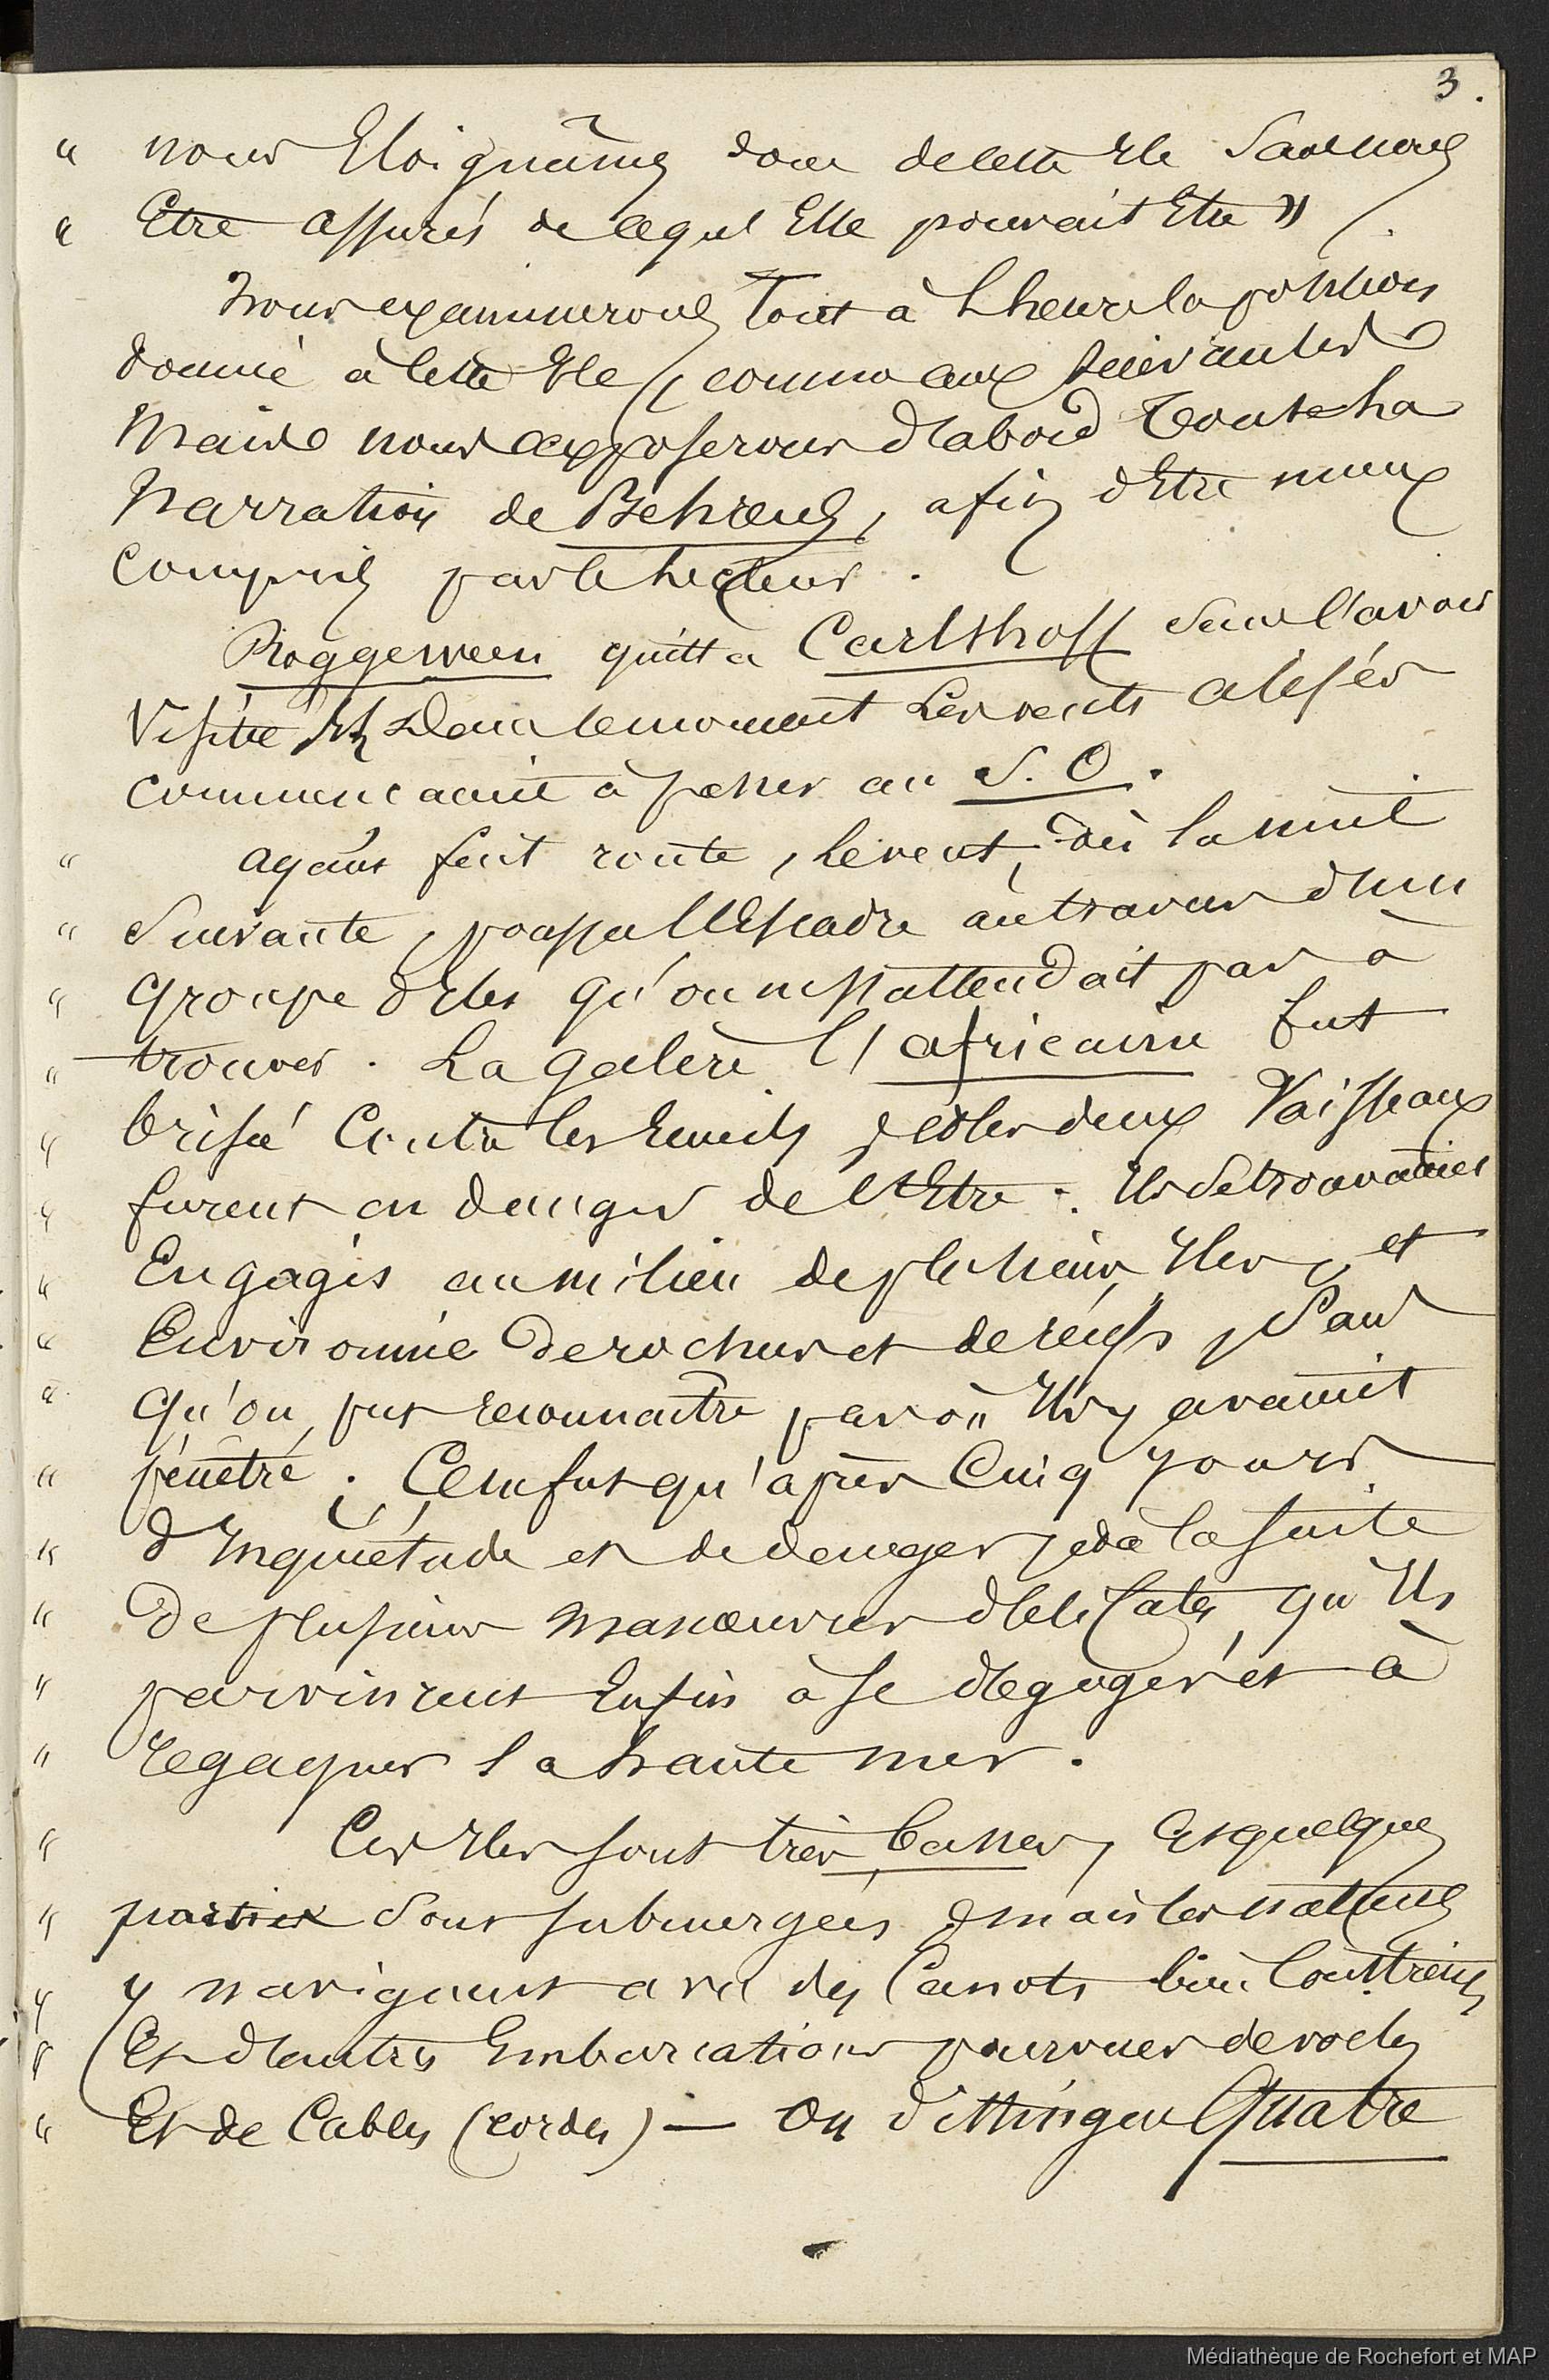 3.
" nous Eloignâmes donc de cette Ile Sans nous
" Etre assurés de ce qu'Elle pouvait Etre "
Nous examinerons Tout à L'heure la position
donnée à cette Ile, comme aux suivantes
Mais nous exposerons d'abord Toute La
Narration de Behrens, afin d'Etre mieux
compris par le Lecteur.
Roggeween quitta Carlshoff sans l'avoir
Visitée Les vents alisés
commençaient à passer au S. O.
" ayant fait route, Le vent, dès la nuit
" Suivante, poussa l'Escadre au travers d'un
" Groupe d'Iles qu'on ne s'attendait pas à
" trouver. La Galère l'africaine fut
" brisée Contre les Ecueils, et les deux Vaisseaux
" furent en danger de l'Etre. Ils se trouvaient
" Engagés au milieu de plusieurs Iles, et
" Environnés de rochers et de récifs, Sans
" Qu'on put reconnaître par où Ils y avaient
" pénétré. Ce ne fut qu'après Cinq jours
" d'Inquiétude et de danger, et à la suite
" De plusieurs Manœuvres délicates, qu'Ils
" parvinrent Enfin à se dégager et à
" regagner la haute mer.
" Ces Iles sont très basses, Et quelques
" parties sont submergées, mais les naturels
" y naviguent avec des Canots bien Construits
" Et d'autres Embarcations pourvues de voiles
" Et de Cables (cordes) — On distingua Quatre
Médiathèque de Rochefort et MAP